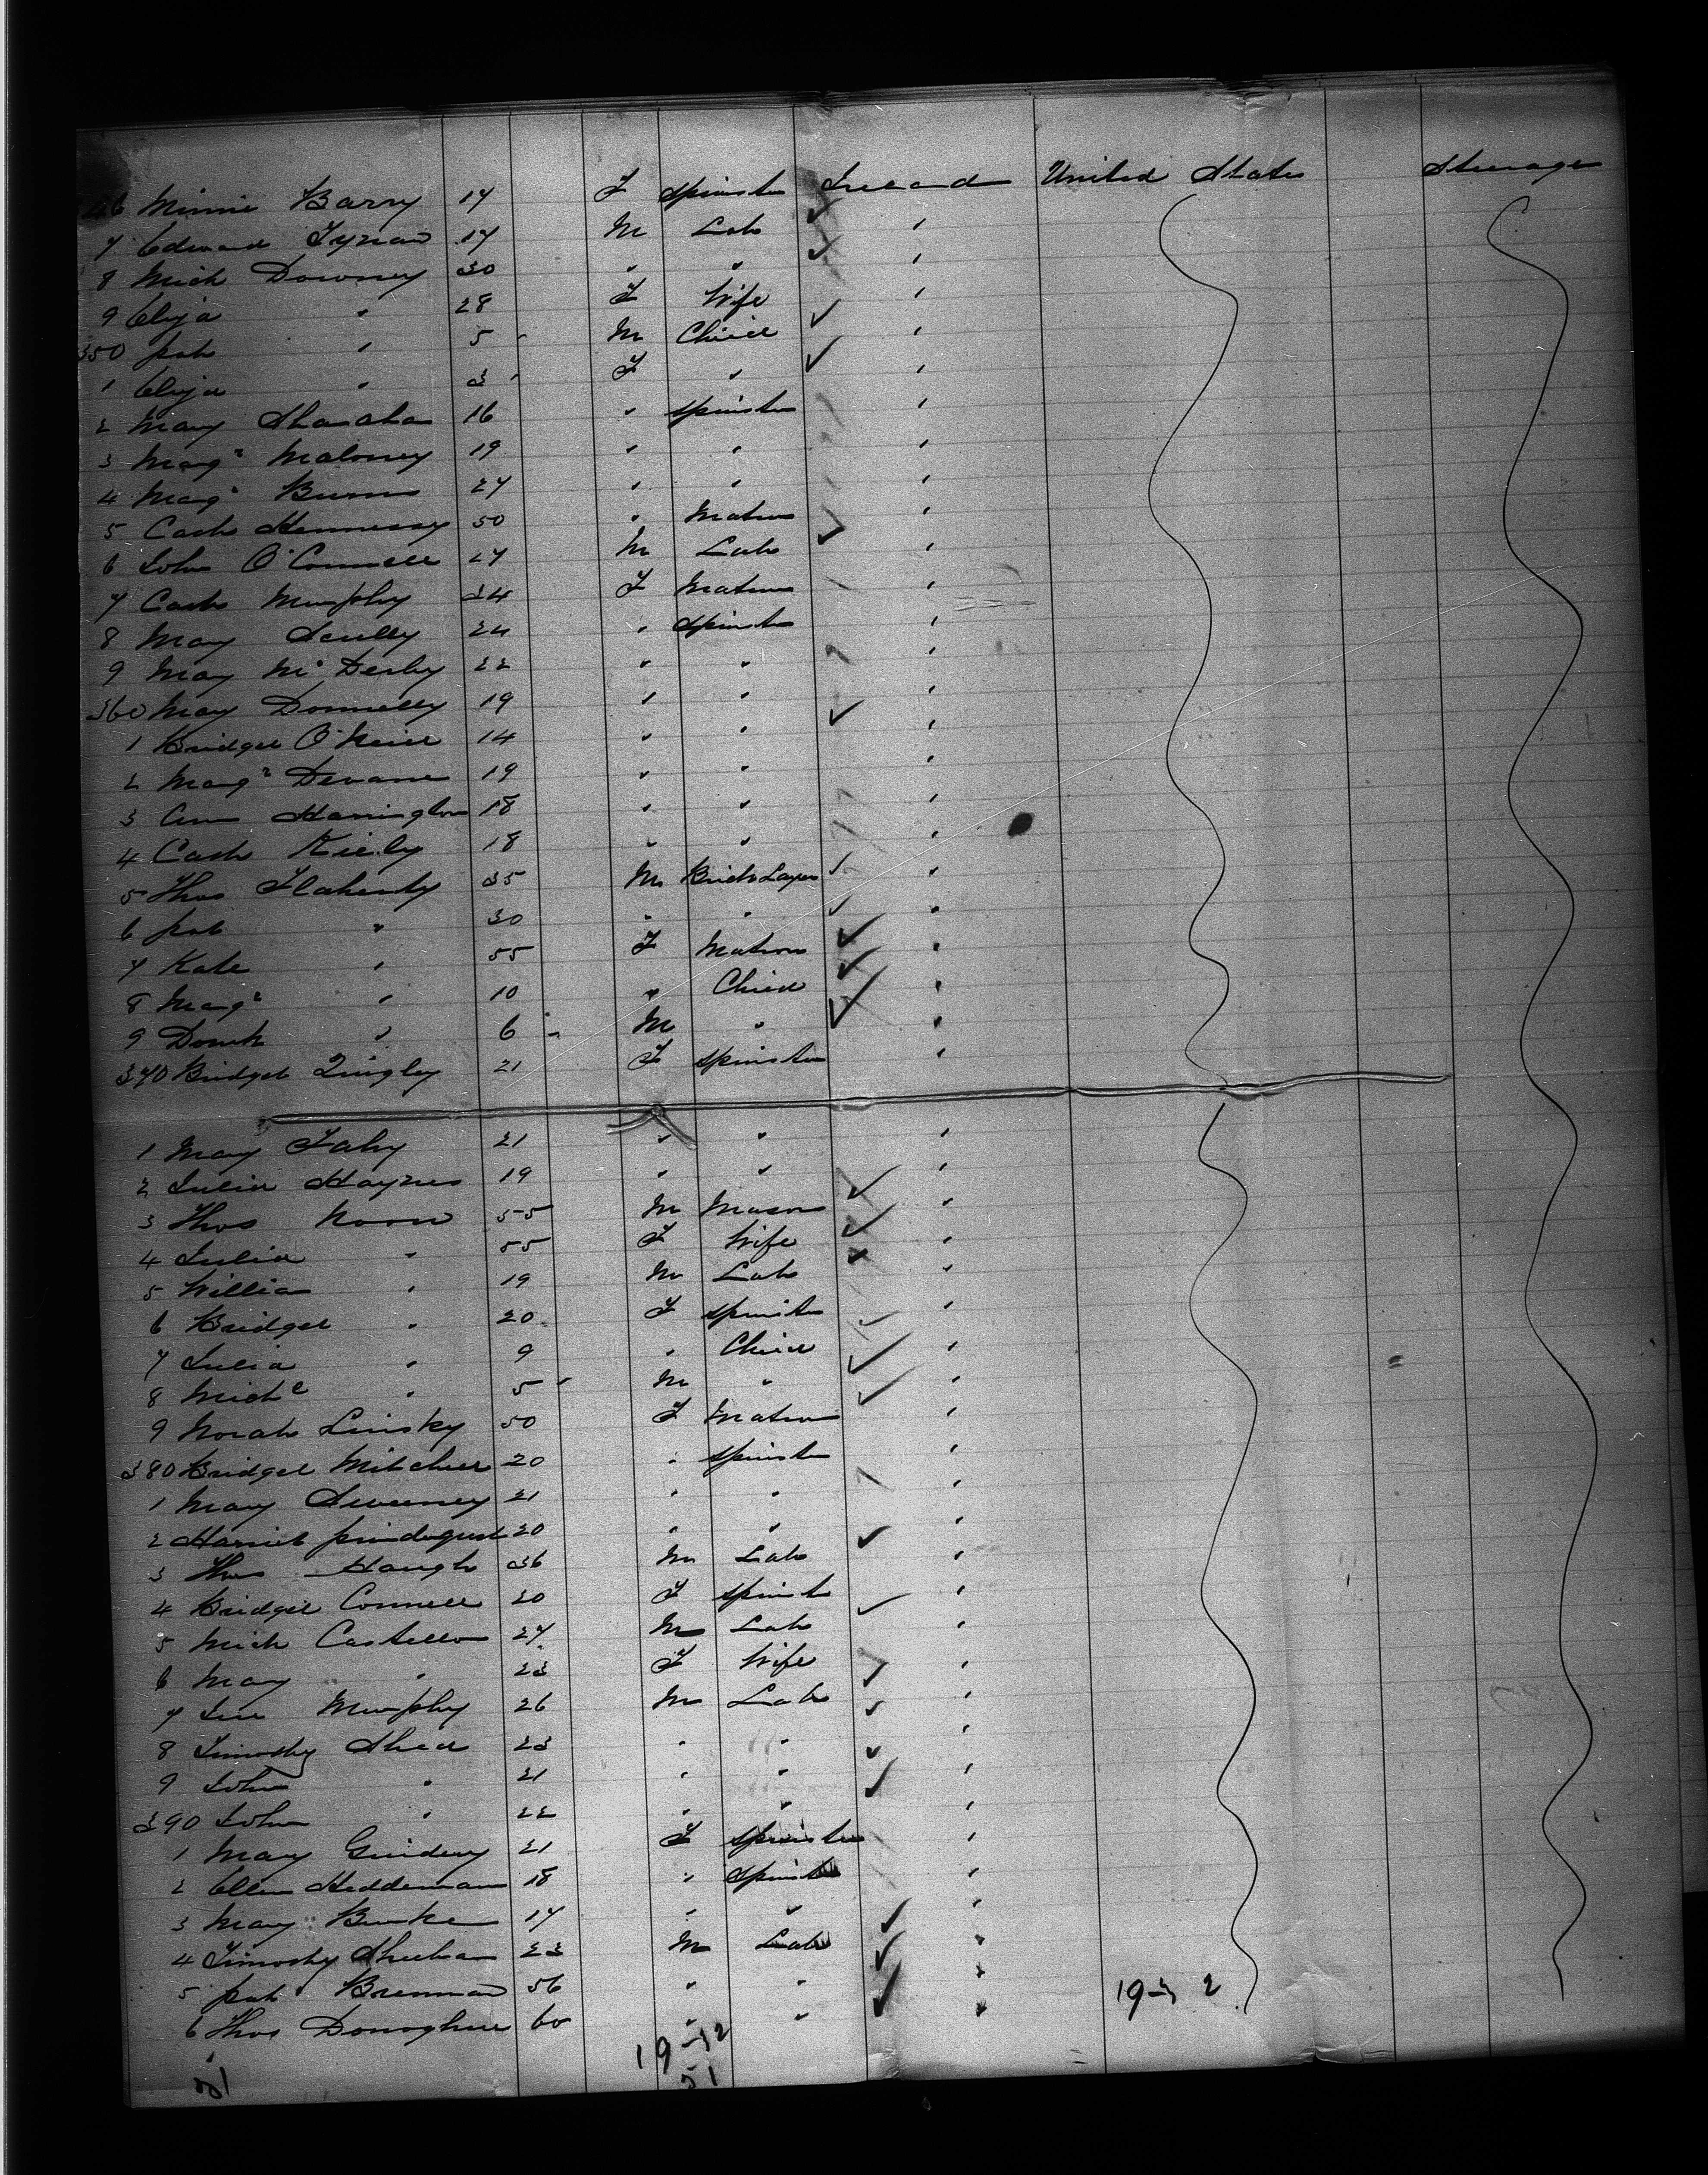 46 Minnie Barry 17 F Spinster Ireland United States Steerage
7 Edward Tynan 17 M Lab " 
8 Mich Downey 30 " " "
9 Eliza " 28 F Wife "
350 Pat " 5 M Child "
1 Eliza " 3 F " "
2 Mary Shanahan 16 " Spinster "
3 Margt Maloney 19 " " "
4 Margt Burns 27 " " "
5 Cath Hennessy 50 " Matron "
6 John O'Connell 27 M Lab "
7 Cath Murphy 34 F Matron "
8 Mary Scully 24 " Spinster "
9 Mary Mc Derby 22 " " "
360 Mary Donnelly 19 " " "
1 Bridget O'Neill 14 " " "
2 Margt Devane 19 " " "
3 Ann Harrington 18 " " "
4 Cath Kiely 18 " " "
5 Thos Flaherty 35 M Brick Layer "
6 Pat " 30 " " "
7 Kate " 55 F Matron "
8 Margt " 10 " Child "
9 Domk " 6 M " "
370 Bridget Quigley 21 F Spinster "
1 Mary Fahy 21 " " "
2 Julia Haynes 19 " " "
3 Thos Noon 55 M Mason "
4 Julia " 55 F Wife "
5 William " 19 M Lab "
6 Bridget " 20 F Spinster "
7 Julia " 9 " Child "
8 Michl " 5 M " "
9 Norah Linsky 50 F Matron "
380 Bridget Mitchell 20 " Spinster "
1 Mary Sweeney 21 " " "
2 Harriet 20 " " "
3 Thos Haugh 36 M Lab "
4 Bridget Connell 20 F Spinster "
5 Mich Castello 27 M Lab "
6 Mary " 23 F Wife "
7 Murphy 26 M Lab "
8 Timothy Shea 23 " " "
9 John " 21 " " "
390 John " 22 " " "
1 Mary 21 F Spinster "
2 Ellen Hedderman 18 " Spinster "
3 Mary Burke 17 " " "
4 Timothy Sheehan 23 M Lab "
5 Pat Brennan 56 " " "
6 Thos Donoghue 60 " " "
51 19 32
51